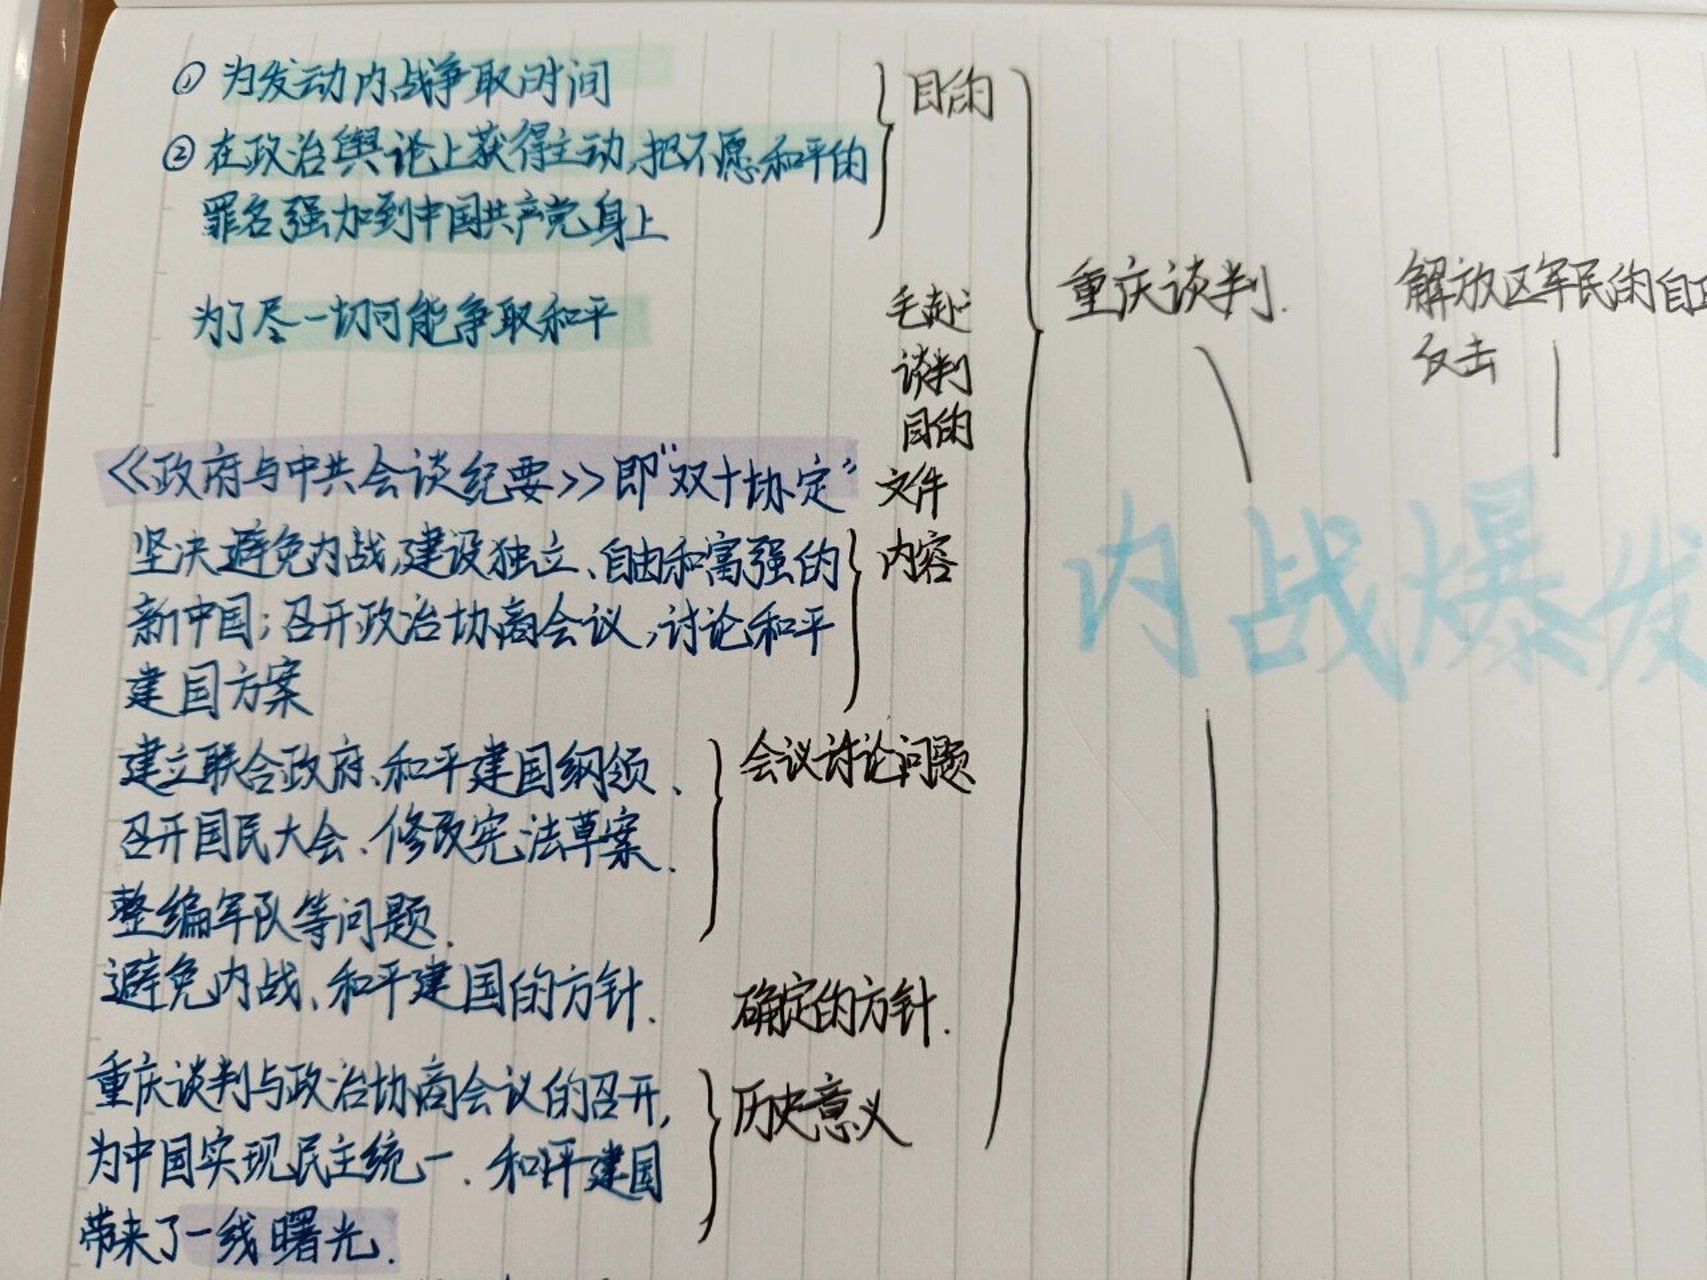 ① 为发动内战争取时间
② 在政治舆论上获得主动,把不愿和平的
罪名强加到中国共产党身上
目的
为了尽一切可能争取和平
毛赴
谈判
目的
《政府与中共会谈纪要》即“双十协定”
文件
坚决避免内战,建设独立、自由和富强的
新中国;召开政治协商会议,讨论和平
建国方案
内容
建立联合政府、和平建国纲领、
召开国民大会、修改宪法草案、
整编军队等问题.
会议讨论问题
避免内战、和平建国的方针.
确定的方针.
重庆谈判与政治协商会议的召开,
为中国实现民主统一、和平建国
带来了一线曙光.
历史意义
重庆谈判.
解放区军民的自卫
反击
内战爆发